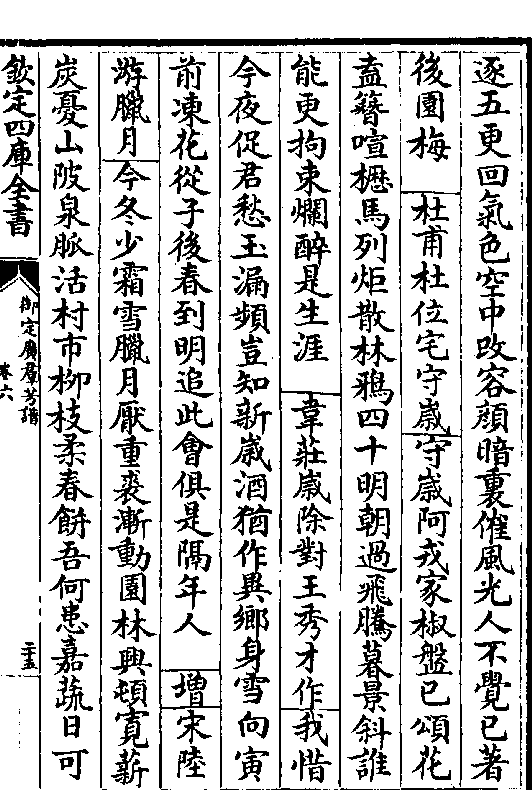 逐五更回氣色空中改容顔暗裏催風光人不覺已著
後園梅　杜甫杜位宅守歲守歲阿戎家椒盤已頌花
盍簪喧櫪馬列炬散林鴉四十明朝過飛騰暮景斜誰
能更拘束爛醉是生涯　韋莊歲除對王秀才作我惜
今夜促君愁玉漏頻豈知新歲酒猶作異鄉身雪向寅
前凍花從子後春到明追此會俱是隔年人　増宋陸
游臘月今冬少霜雪臘月厭重裘漸動園林興頓寛薪
炭憂山陂泉脈活村市栁枝柔春餠吾何患嘉蔬日可
欽定四庫全書
御定廣羣芳譜
卷六
二十五